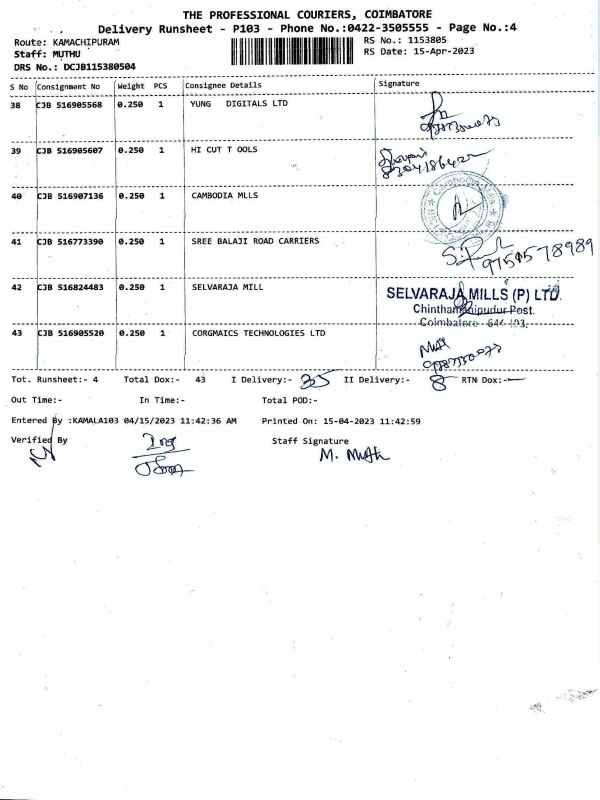 THE PROFESSIONAL COURIERS, COIMBATORE
Delivery Runsheet - P103 - Phone No.:0422-3505555 - Page No.:4
Route: KAMACHIPURAM RS No.: 1153805
Staff: MUTHU RS Date: 15-Apr-2023
DRS No.: DCJB115380504
S No Consignment No Weight PCS Consignee Details Signature
38 CJB 516905568 0.250 1 YUNG DIGITALS LTD
39 CJB 516905607 0.250 1 HI CUT T OOLS
40 CJB 516907136 0.250 1 CAMBODIA MLLS
41 CJB 516773390 0.250 1 SREE BALAJI ROAD CARRIERS
9751578989
42 CJB 516824483 0.250 1 SELVARAJA MILL SELVARAJA MILLS (P) LTD.
Post.
Coimbatore
43 CJB 516905520 0.250 1 CORGMAICS TECHNOLOGIES LTD
Tot. Runsheet:- 4 Total Dox:- 43 I Delivery:- 35 II Delivery:- 8 RTN Dox:-
Out Time:- In Time:- Total POD:-
Entered By :KAMALA103 04/15/2023 11:42:36 AM Printed On: 15-04-2023 11:42:59
Verified By Staff Signature
M. Muth